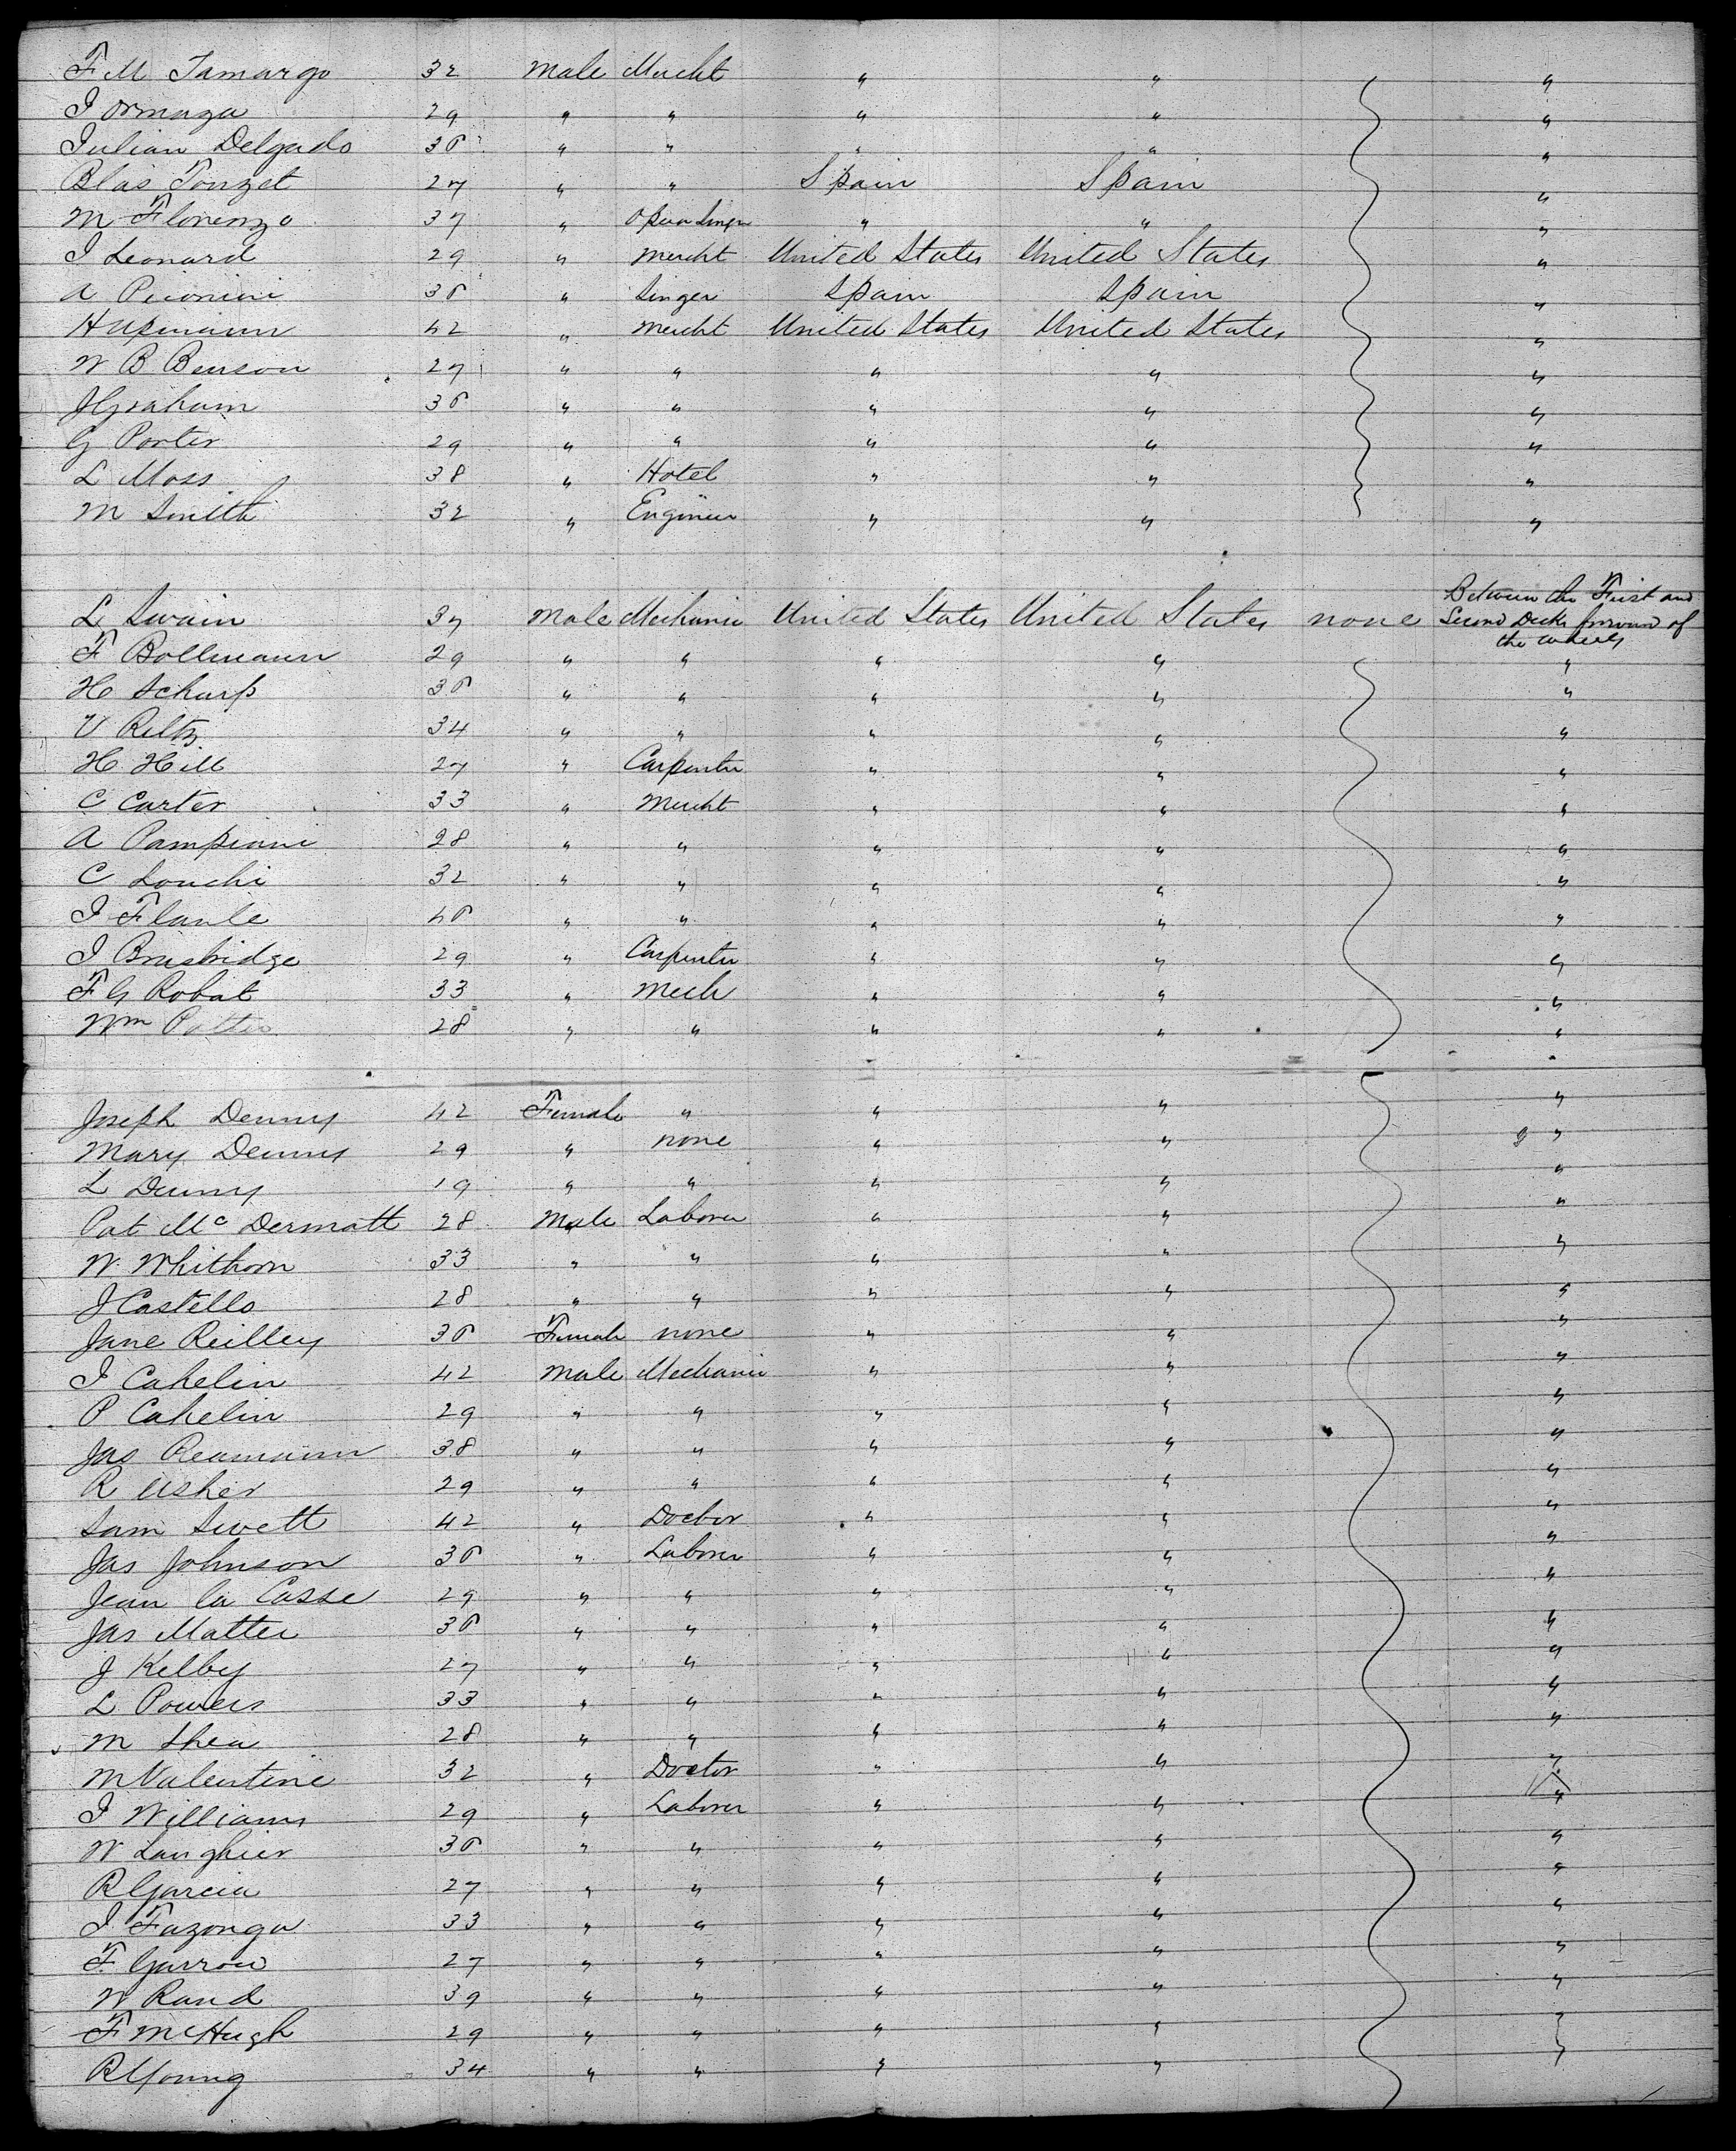 F M Tamargo 32 Male Mercht " " "
I Ormaza 29 " " " " "
Julian Delgado 30 " " " " "
Blas Tonzet 27 " " Spain Spain "
M Florenzo 37 " Opera Singer " " "
I Leonard 29 " Mercht United States United States "
A 30 " Singer Spain Spain "
Hupmann 42 " Mercht United States United States "
W B Benson 27 " " " " "
J Graham 30 " " " " "
G Porter 29 " " " " "
L Moss 38 " Hotel " " "
M Smith 32 " Engineer " " "
L Swain 37 Male Mechanic United States United States none Between the First and Second Decks forward of the wheels
F Bollmann 29 " " " " "
H Scharp 30 " " " " "
V Reltz 34 " " " " "
H Hill 27 " Carpenter " " "
C Carter 33 " Mercht " " "
A Pampiani 28 " " " " "
C Louchi 32 " " " " "
I Flanle 40 " " " " "
I Brasbridge 29 " Carpenter " " "
F G Robat 33 " Mech " " "
Wm Potter 28 " " " " "
Joseph Denny 42 Female " " " "
Mary Denny 29 " none " " "
L Denny 19 " " " " "
Pat McDermott 28 Male Laborer " " "
W Whithorn 33 " " " " "
J Castello 28 " " " " "
Jane Reilley 30 Female none " " "
I Cahelin 42 Male Mechanic " " "
P Cahelin 29 " " " " "
Jas Reamann 38 " " " " "
R Usher 29 " " " " "
Sam Swett 42 " Doctor " " "
Jas Johnson 30 " Laborer " " "
Jean la Casse 29 " " " " "
Jas Matter 30 " " " " "
J Kelby 27 " " " " "
L Powers 33 " " " " "
M Shea 28 " " " " "
M Valentine 32 " Doctor " " "
I Williams 29 " Laborer " " "
W Langhier 30 " " " " "
R Garcia 27 " " " " "
I Fazonga 33 " " " " "
F Garrow 27 " " " " "
W Rand 39 " " " " "
F McHugh 29 " " " " "
R Young 34 " " " " "